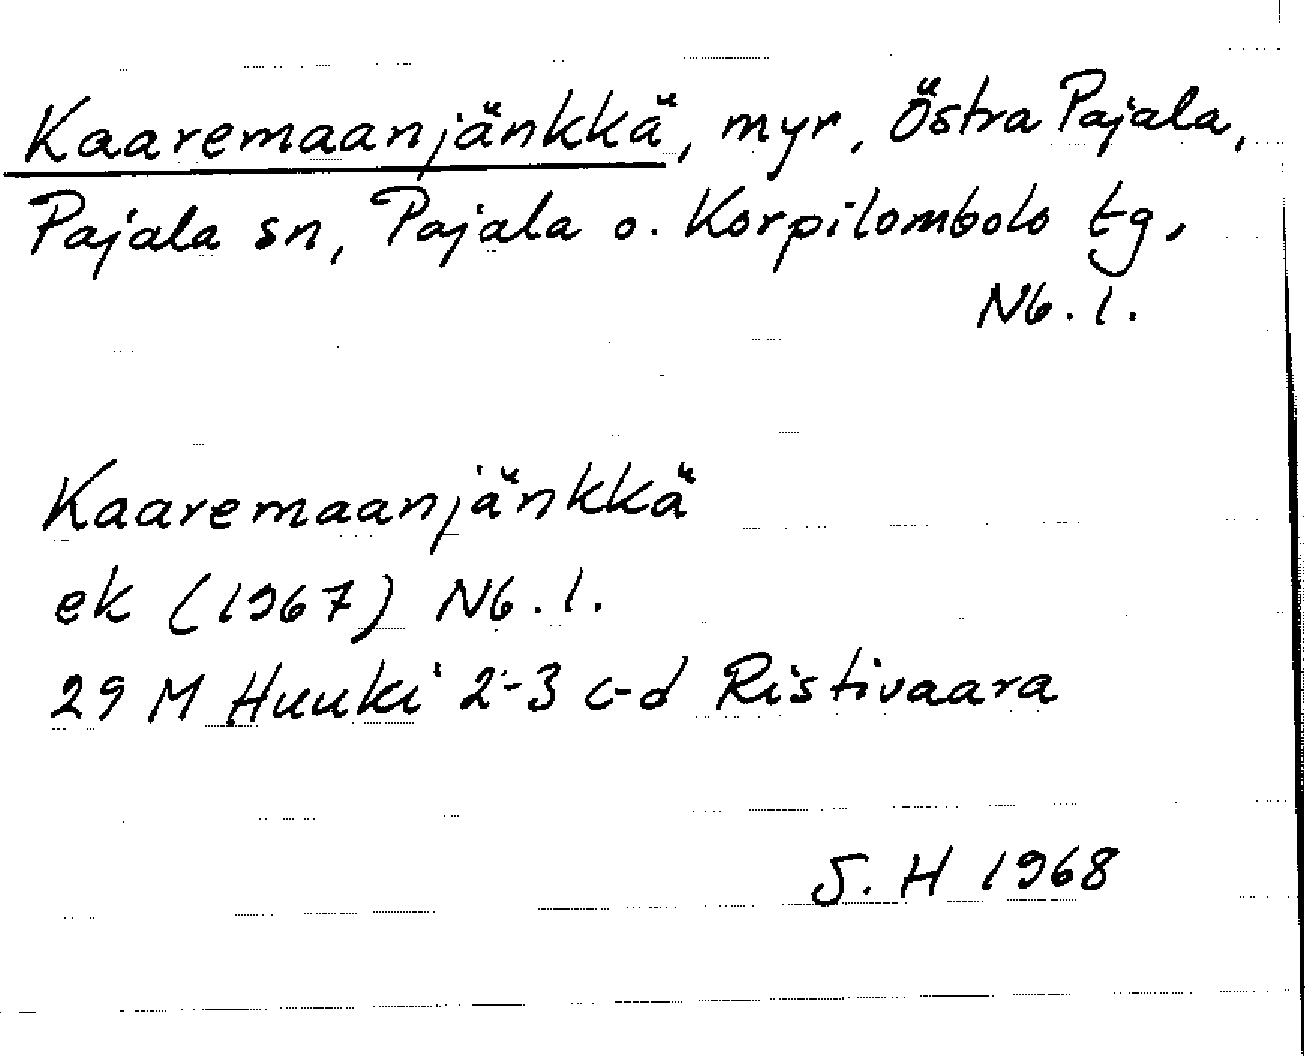 Kaaremaanjänkkä, myr, Östra Pajala,
Pajala sn, Pajala o. Korpilombolo tg,
Nb. l.
Kaaremaanjänkkä
ek (1967) Nb. l.
29 M Huuki 2-3 c-d Ristivaara
S. H 1968